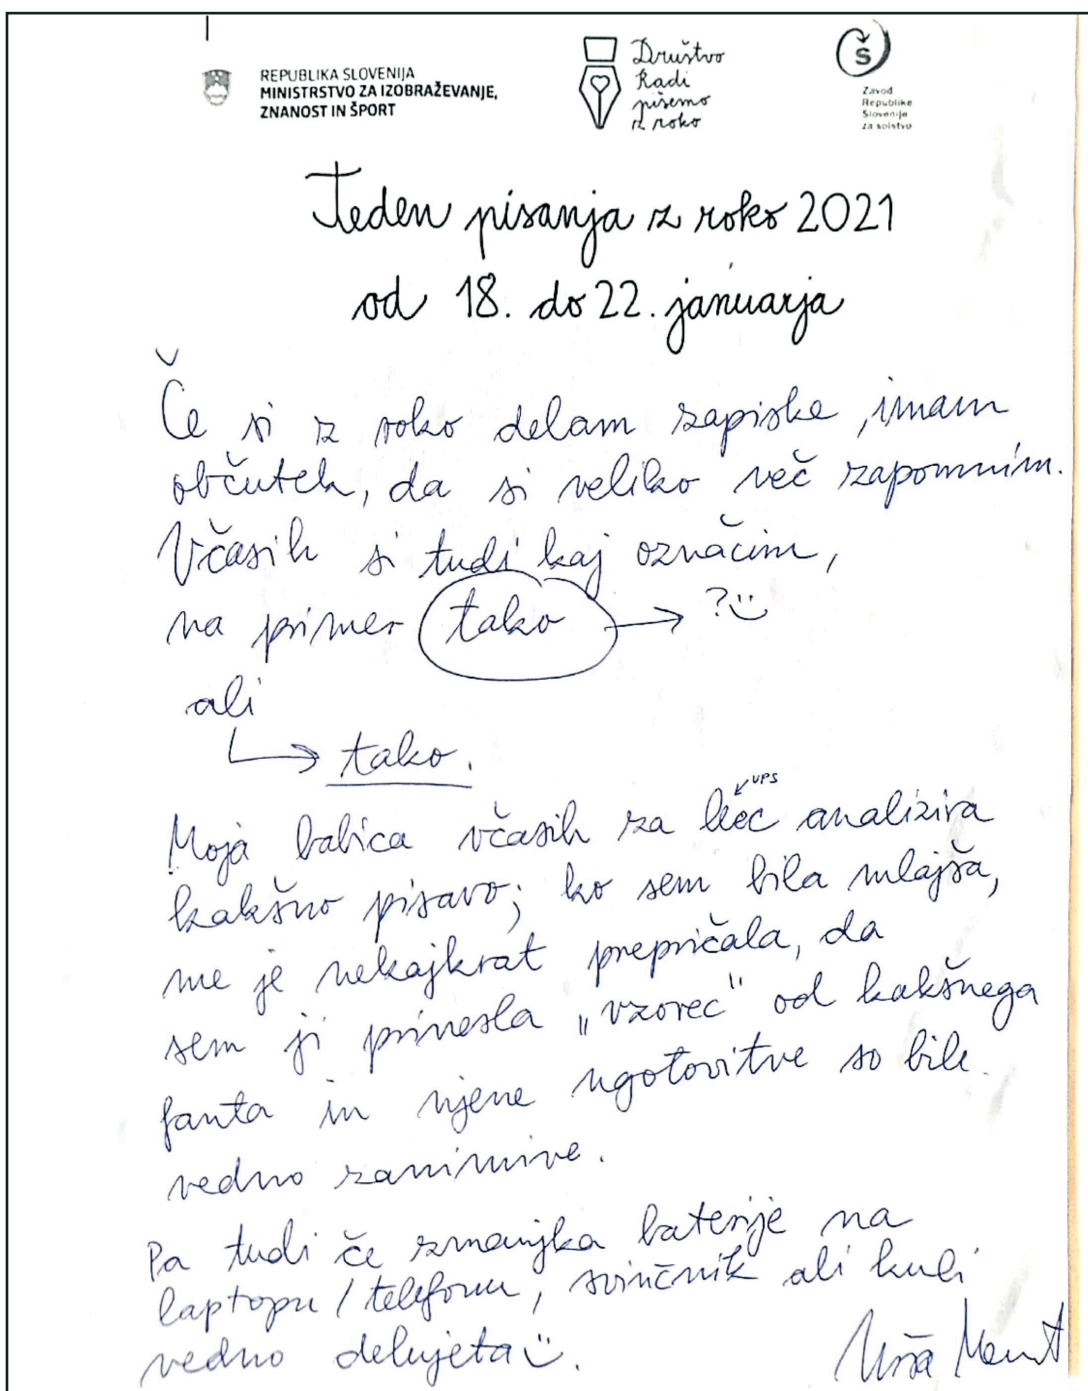 REPUBLIKA SLOVENIJA
MINISTRSTVO ZA IZOBRAŽEVANJE,
ZNANOST IN ŠPORT
Društvo
Radi
pišemo
z roko
Š
Zavod
Republike
Slovenije
za šolstvo
Teden pisanja z roko 2021
od 18. do 22. januarja
Če si z roko delam zapiske, imam
občutek, da si veliko več zapomnim.
Včasih si tudi kaj označim,
na primer tako → ?
ali
→ tako.
UPS
Moja babica včasih za analizira
kakšno pisavo; ko sem bila mlajša,
me je nekajkrat prepričala, da
sem ji prinesla „vzorec" od kakšnega
fanta in njene ugotovitve so bile
vedno zanimive.
Pa tudi če zmanjka baterije na
laptopu / telefonu, svinčnik ali kuli
vedno delujeta.